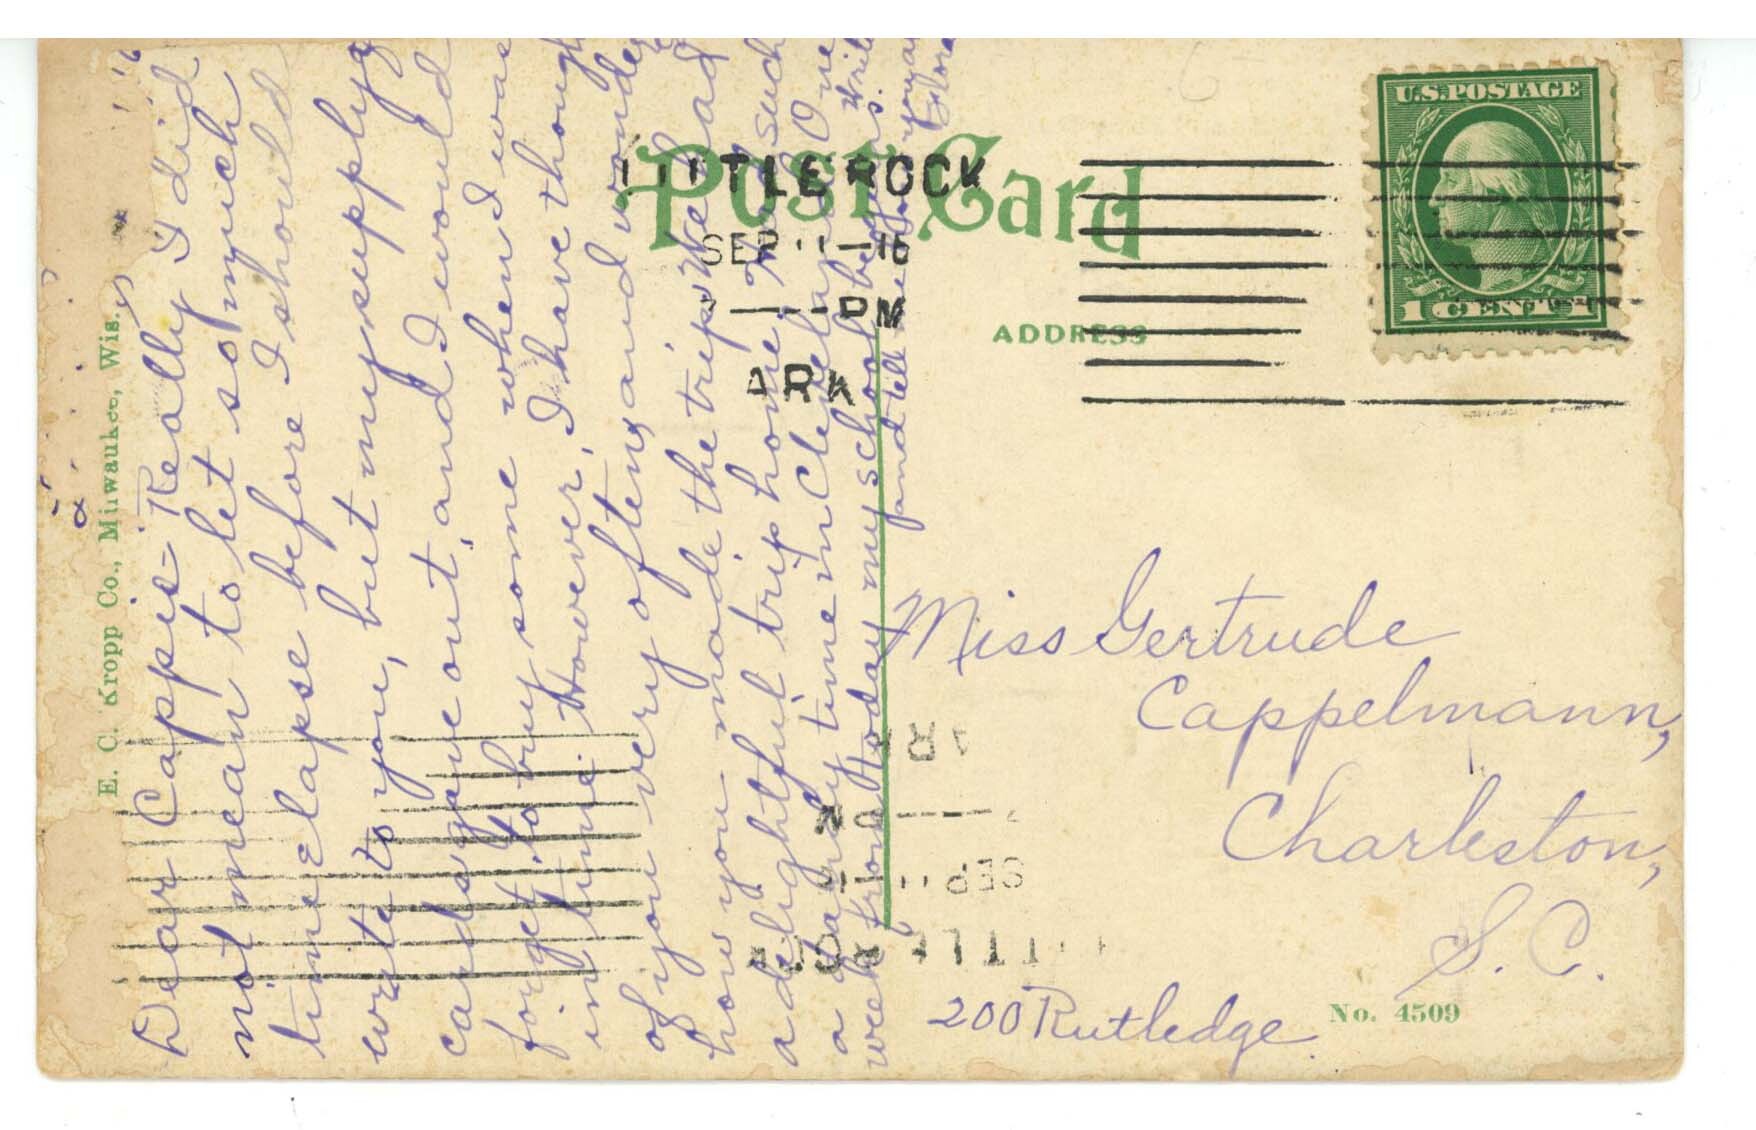 Dear Cappie - Really I did
not mean to let so much
time elapse before I should
write to you, but my supply
cards gave out, and I would
forget to buy some when I was
in time. However, I have though
of you very often, and wonde
how you made the trip. We had
a delightful trip home, and such
a early time in Cleveland. One
week from today my school begins.
Write
and tell me you
Flora
E. C. Kropp Co., Milwaukee, Wis.
Post Card
LITTLE ROCK
SEP 11 - 16
PM
ARK
ADDRESS
U.S. POSTAGE
1 CENT 1
Miss Gertrude
Cappelmann,
Charleston,
S. C.
200 Rutledge.
No. 4509
ARK
PM
SEP 11
LITTLE ROCK